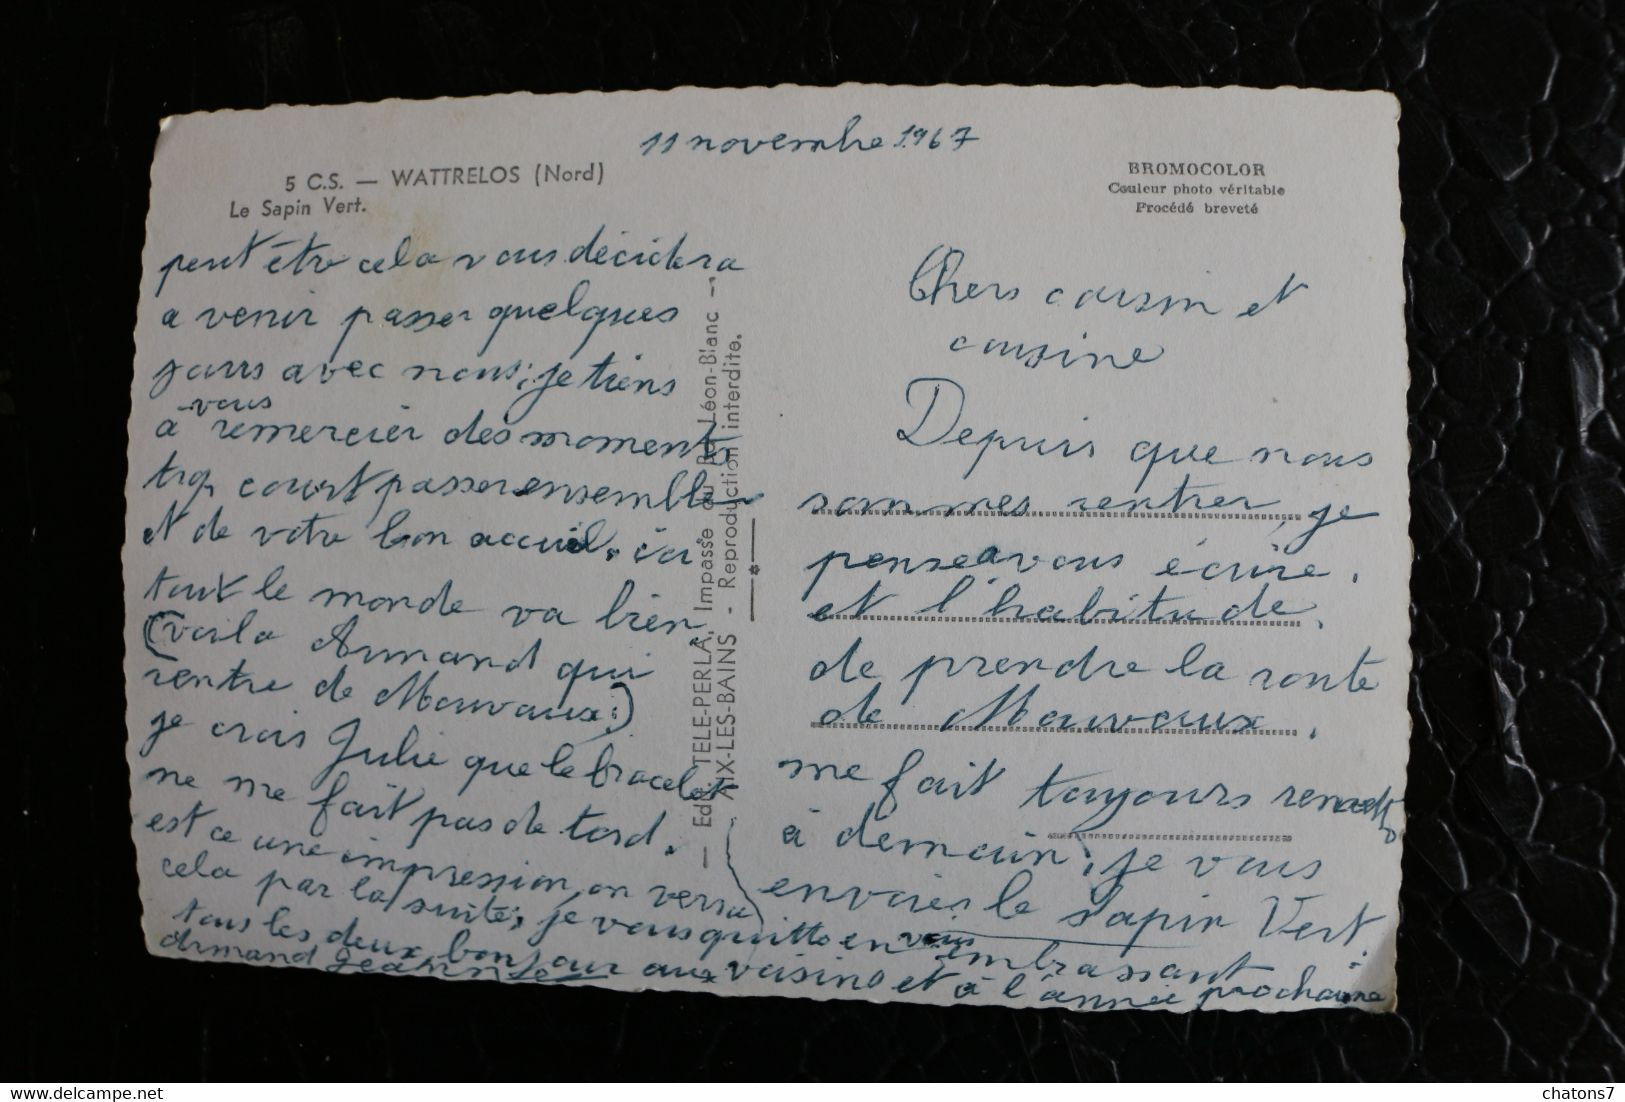 11 novembre 1967
5 C.S. — WATTRELOS (Nord)
Le Sapin Vert.
BROMOCOLOR
Couleur photo véritable
Procédé breveté
Chers cousin et
cousine
Depuis que nous
sommes rentrer, je
pense a vous écrire.
et l'habitude.
de prendre la route
de Mouvaux.
me fait toujours
à demain; je vous
envoies le sapin Vert.
peut être cela vous décidera
a venir passer quelques
jours avec nous; je tiens
à vous remercier des moments
trop court passer ensemble
et de votre bon accueil. ici
tout le monde va bien
(voila Armand qui
rentre de Mouvaux:)
je crois Julie que le bracelet
ne me fait pas de tord.
est ce une impression, on verra
cela par la suite; je vous quitte en vous embrassant
tous les deux bonjour aux voisins et à l'année prochaine
Armand Jeannine
— Edit. TELE-PERLA, Impasse du Rd Léon-Blanc —
AIX-LES-BAINS - Reproduction interdite.
https://www.delcampe.net
chatons7